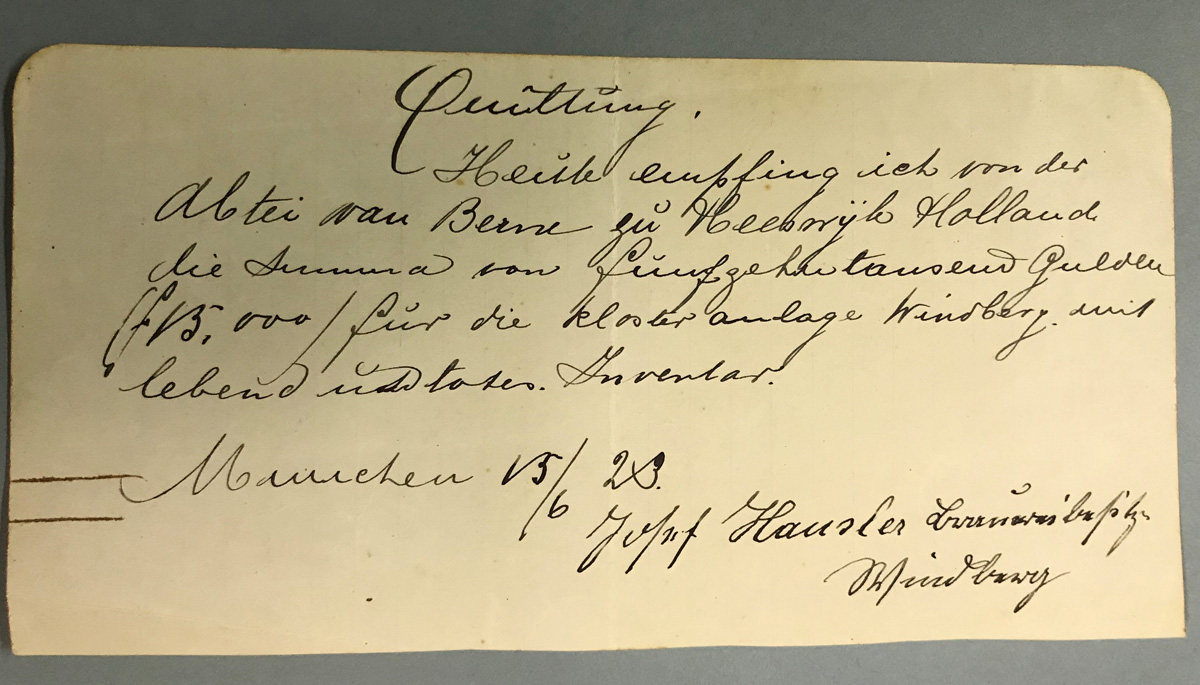 Quittung.
Heute empfing ich von der
Abtei van Berne zu Heeswijk Holland
die Summa von funfzehntausend Gulden
(f 15,000) für die Klosteranlage Windberg mit
lebend und totes. Inventar.
München 15/6 23.
Josef Hausler Brauereibesitzer
Windberg